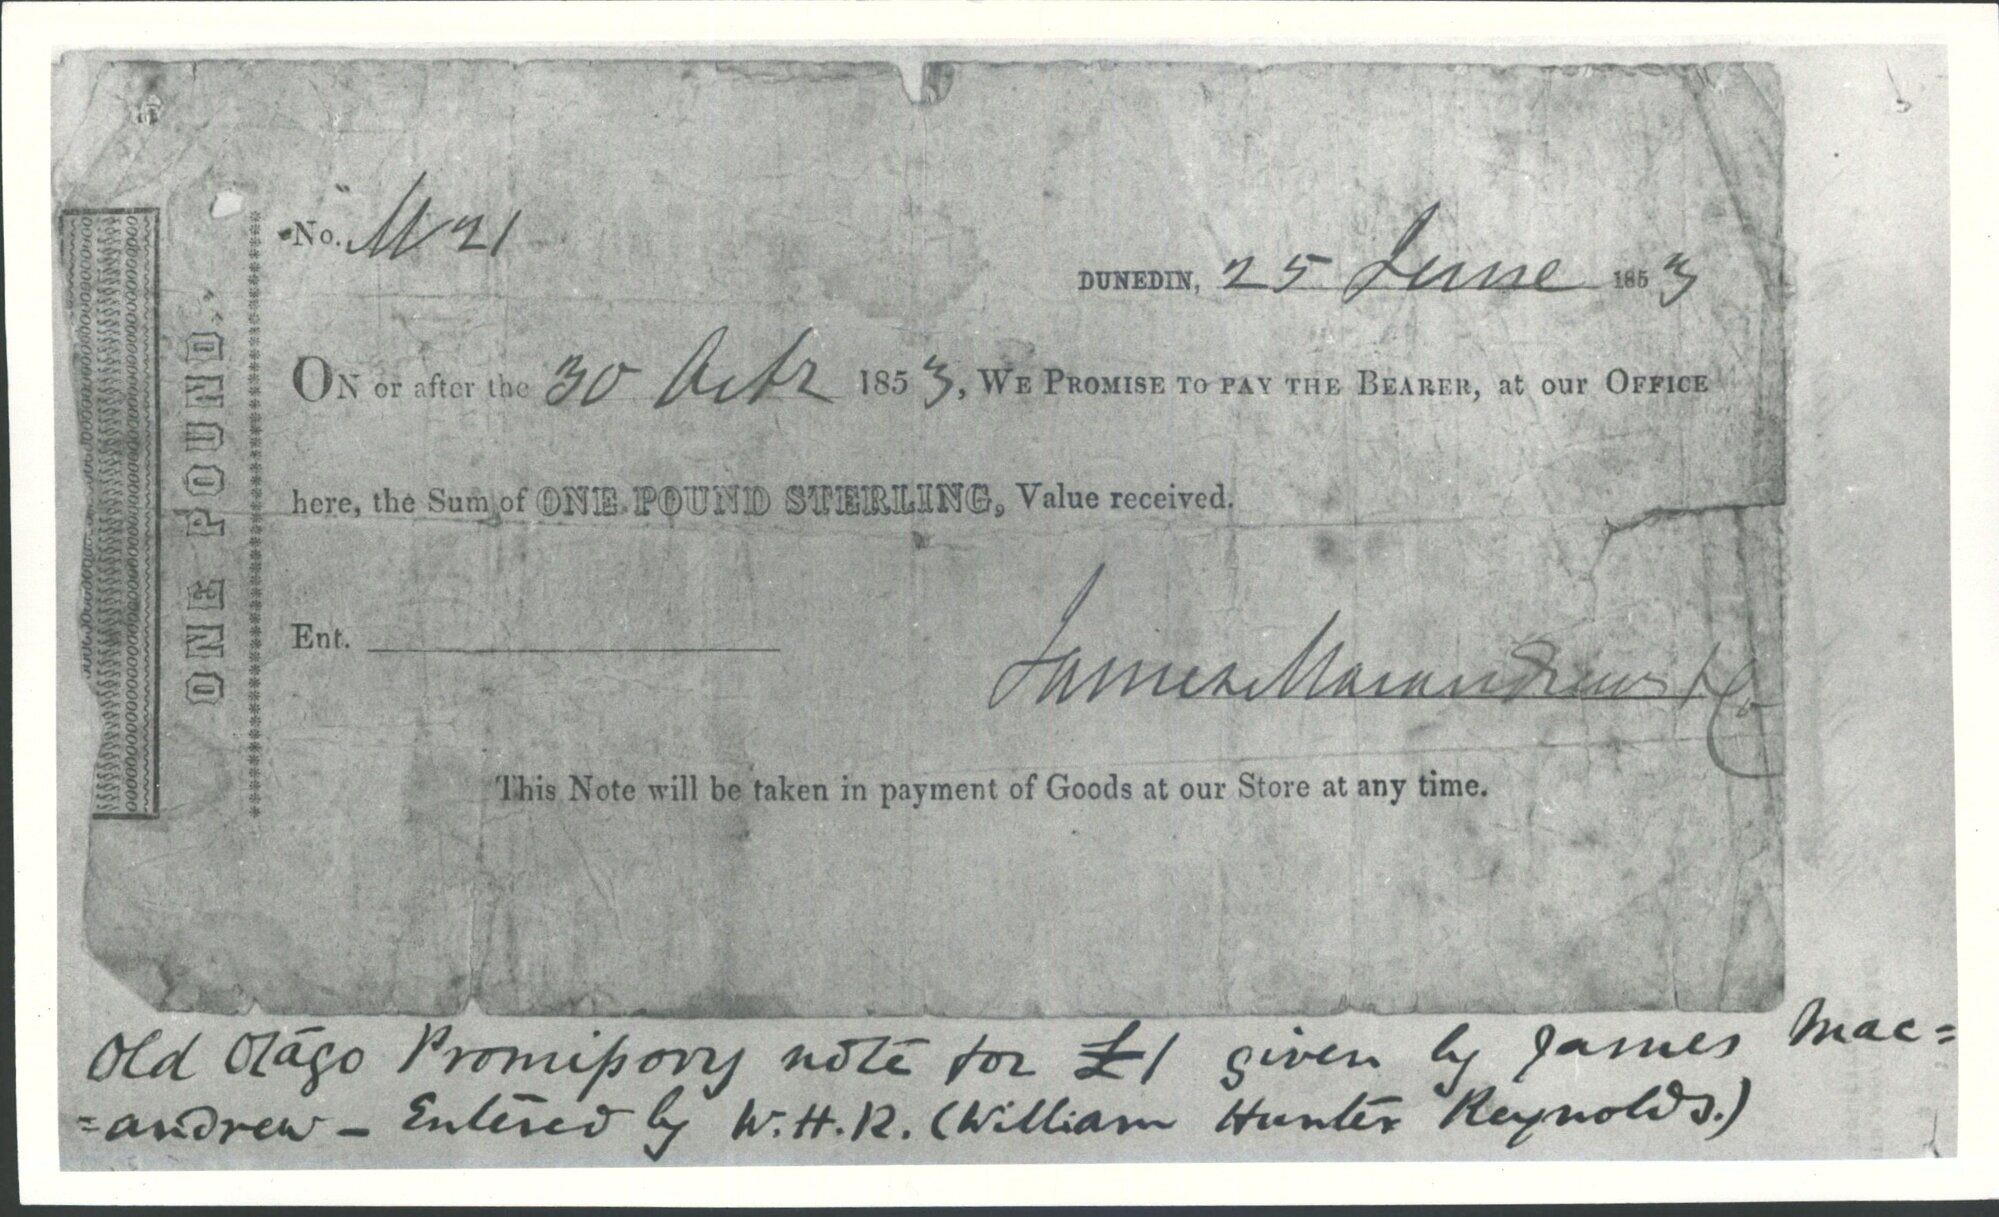 ONE POUND.
No. M 21
DUNEDIN, 25 June 1853
ON or after the 30 Octr 1853, WE PROMISE TO PAY THE BEARER, at our OFFICE
here, the Sum of ONE POUND STERLING, Value received.
Ent.
James Macandrew & Co
This Note will be taken in payment of Goods at our Store at any time.
Old Otago Promissory note for £1 given by James Mac=
=andrew – Entered by W.H.R. (William Hunter Reynolds.)